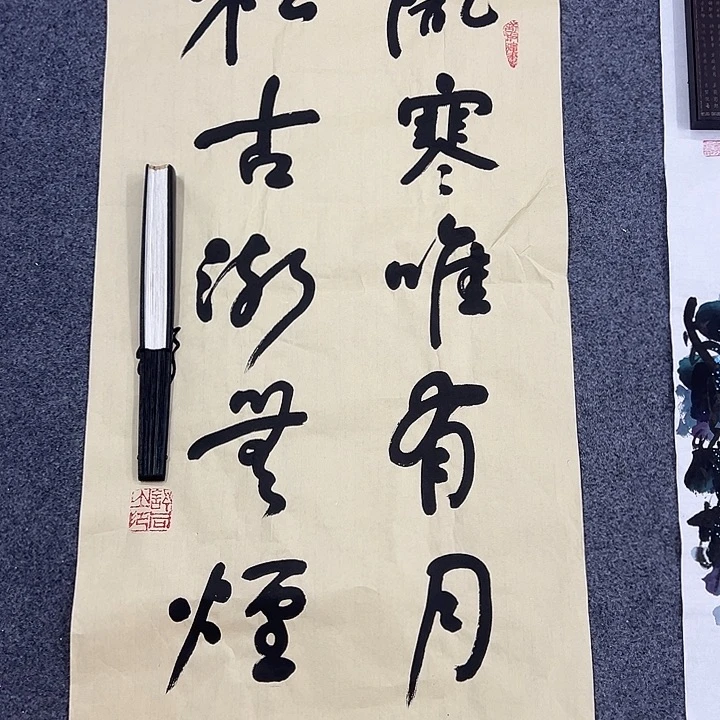 寒唯有月
松古漸無煙